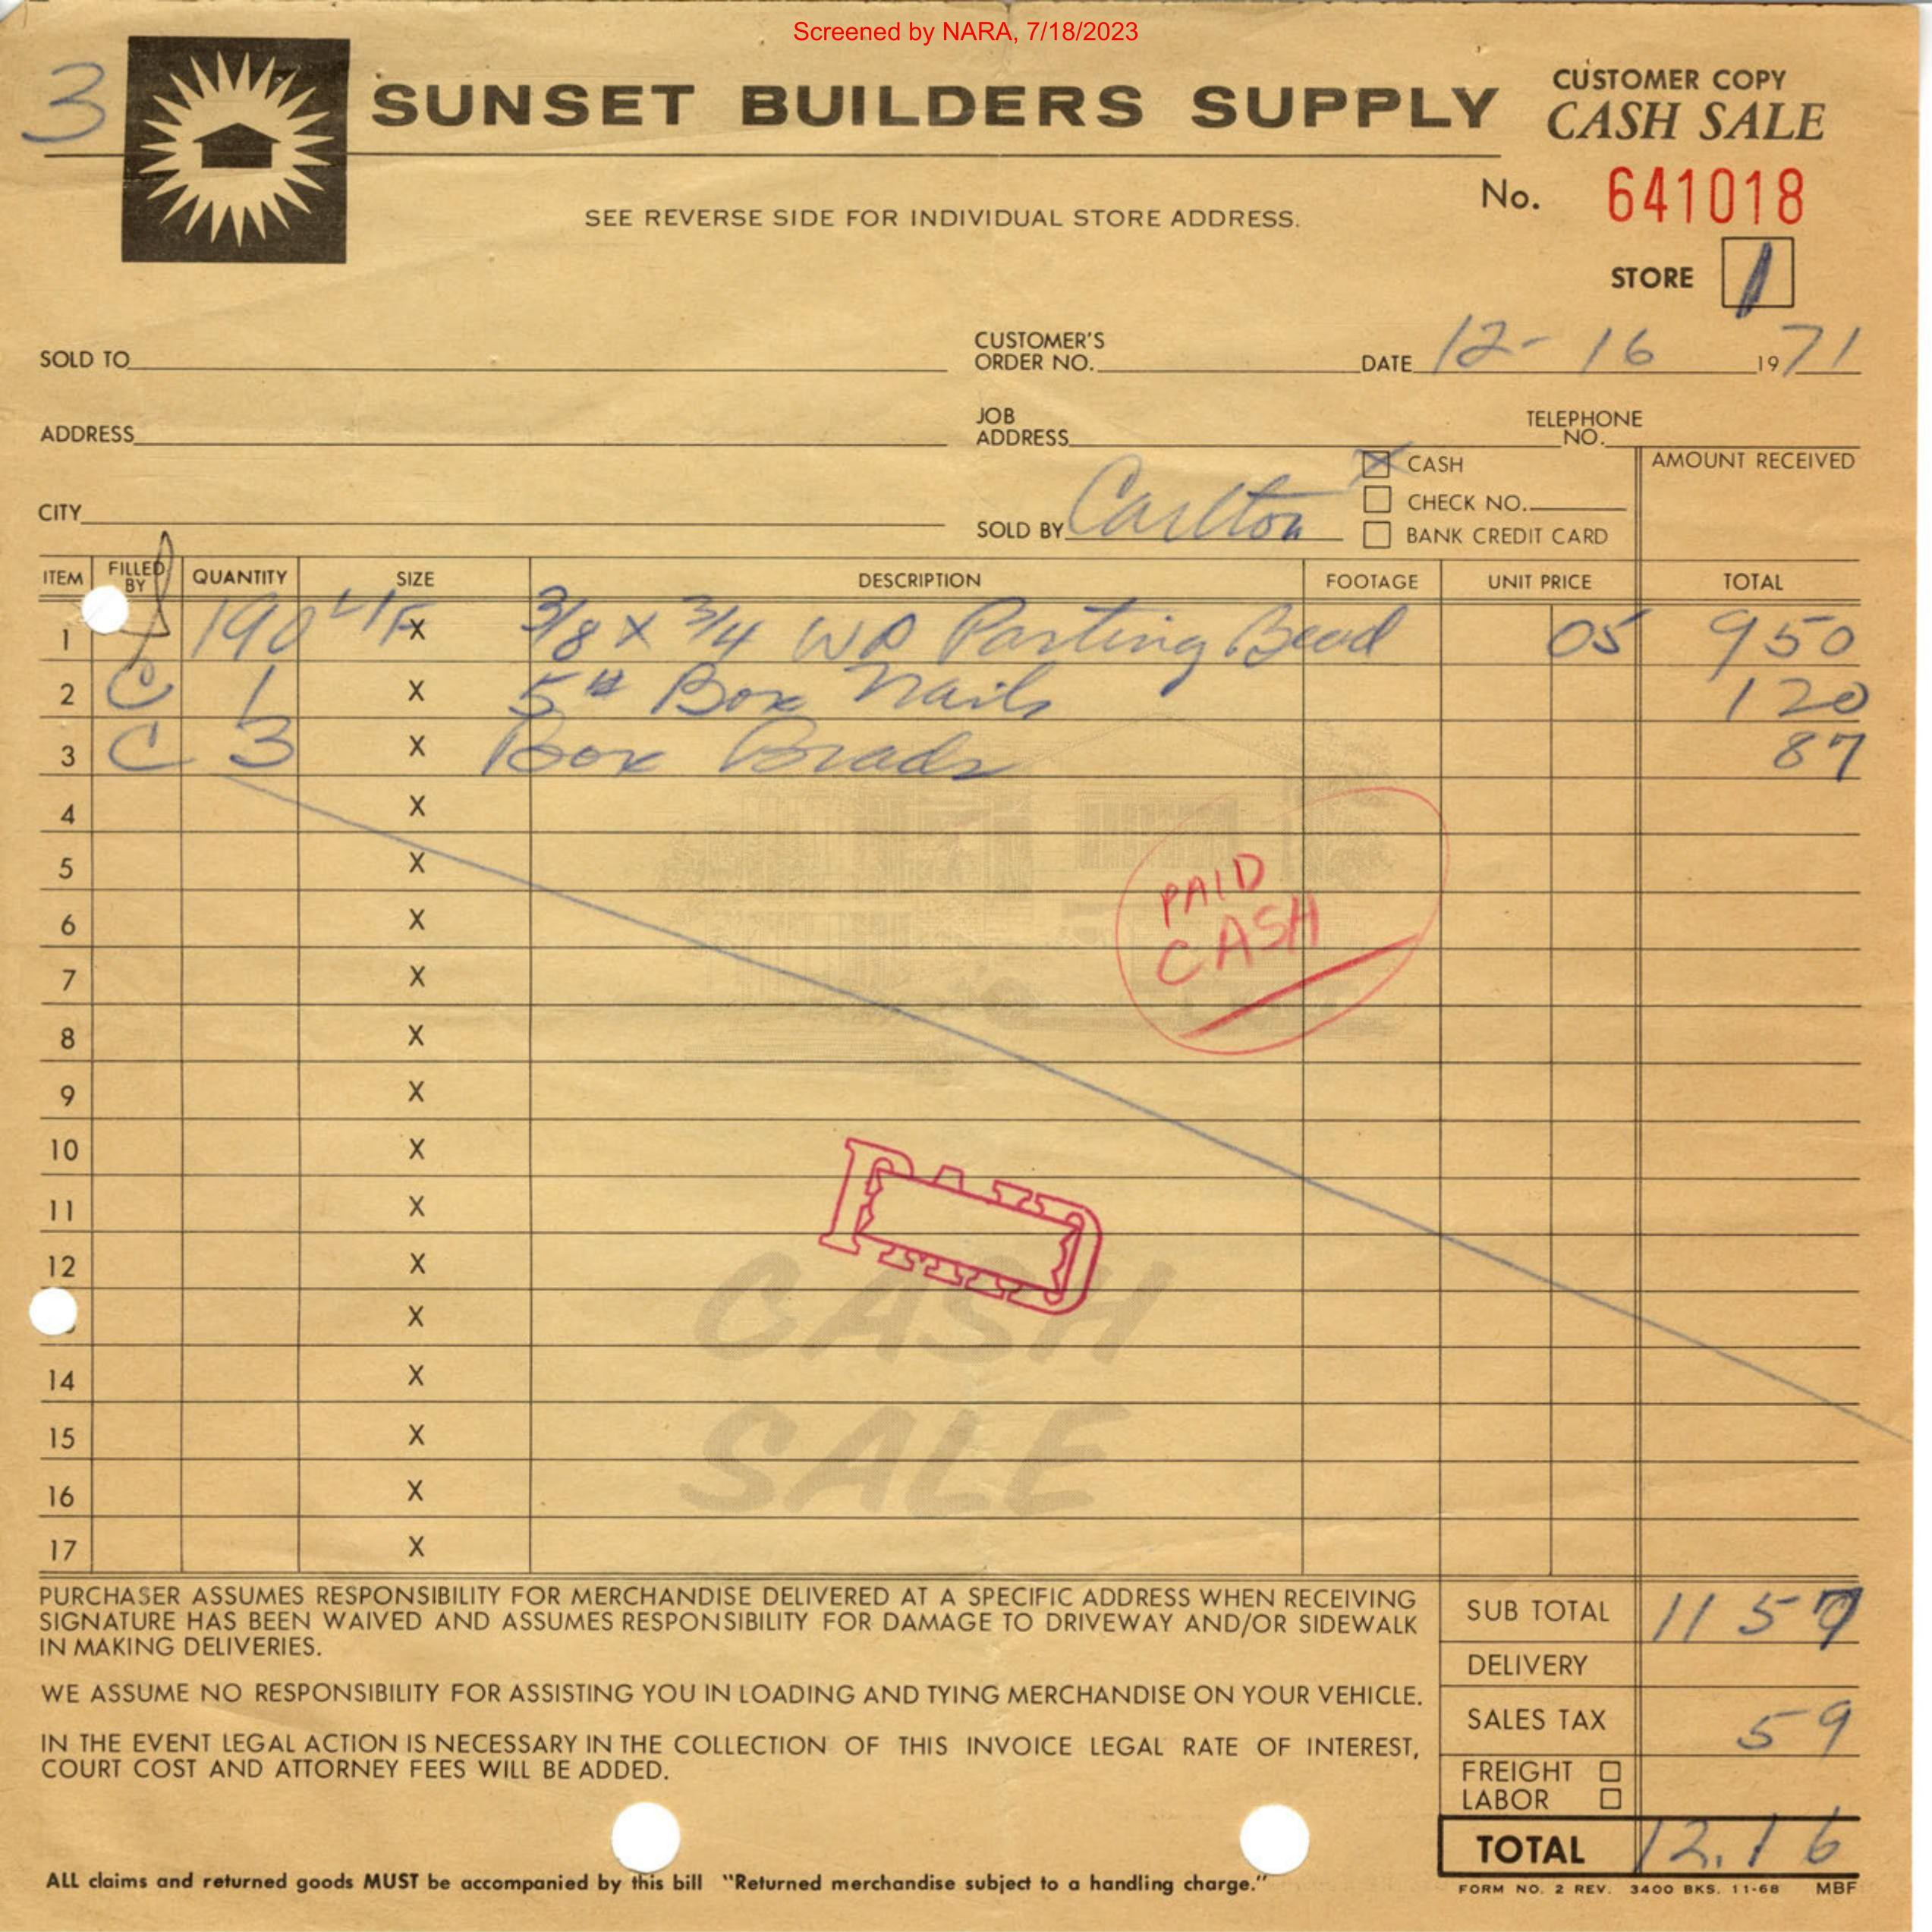 Screened by NARA, 7/18/2023
3
SUNSET BUILDERS SUPPLY
CUSTOMER COPY
CASH SALE
No. 641018
SEE REVERSE SIDE FOR INDIVIDUAL STORE ADDRESS.
STORE 1
SOLD TO
CUSTOMER'S ORDER NO.
DATE 12-16 1971
ADDRESS
JOB ADDRESS
TELEPHONE NO.
CITY
SOLD BY Carlton
X CASH
CHECK NO.
BANK CREDIT CARD
AMOUNT RECEIVED
ITEM FILLED BY QUANTITY SIZE DESCRIPTION FOOTAGE UNIT PRICE TOTAL
1 190 LF X 3/8 X 3/4 WP Parting Bead 05 950
2 C 1 X 5# Box Nails 120
3 C 3 X Box Brads 87
4 X
5 X
6 X
7 X
8 X
9 X
10 X
11 X
12 X
X
14 X
15 X
16 X
17 X
PAID
CASH
PAID
CASH
SALE
PURCHASER ASSUMES RESPONSIBILITY FOR MERCHANDISE DELIVERED AT A SPECIFIC ADDRESS WHEN RECEIVING
SIGNATURE HAS BEEN WAIVED AND ASSUMES RESPONSIBILITY FOR DAMAGE TO DRIVEWAY AND/OR SIDEWALK
IN MAKING DELIVERIES.
WE ASSUME NO RESPONSIBILITY FOR ASSISTING YOU IN LOADING AND TYING MERCHANDISE ON YOUR VEHICLE.
IN THE EVENT LEGAL ACTION IS NECESSARY IN THE COLLECTION OF THIS INVOICE LEGAL RATE OF INTEREST,
COURT COST AND ATTORNEY FEES WILL BE ADDED.
SUB TOTAL 11 57
DELIVERY
SALES TAX 59
FREIGHT
LABOR
TOTAL 12.16
ALL claims and returned goods MUST be accompanied by this bill "Returned merchandise subject to a handling charge."
FORM NO. 2 REV. 3400 BKS. 11-68 MBF